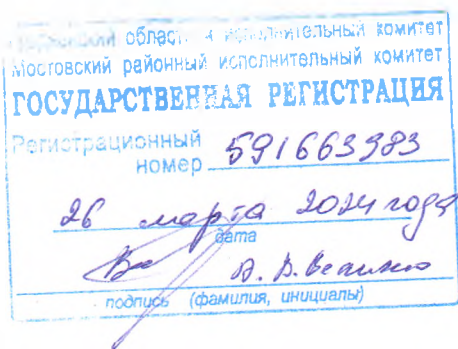 областной исполнительный комитет
Мостовский районный исполнительный комитет
ГОСУДАРСТВЕННАЯ РЕГИСТРАЦИЯ
Регистрационный
номер 591663983
26 марта 2024 года
дата
подпись (фамилия, инициалы)